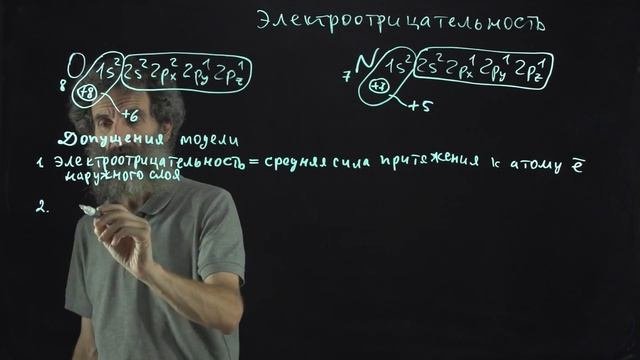 Электроотрицательность
₈O 1s² 2s² 2pₓ² 2pᵧ¹ 2p_z¹
+8
+6
₇N 1s² 2s² 2pₓ¹ 2pᵧ¹ 2p_z¹
+5
Допущения модели
1. Электроотрицательность = средняя сила притяжения к атому ē
наружного слоя
2.